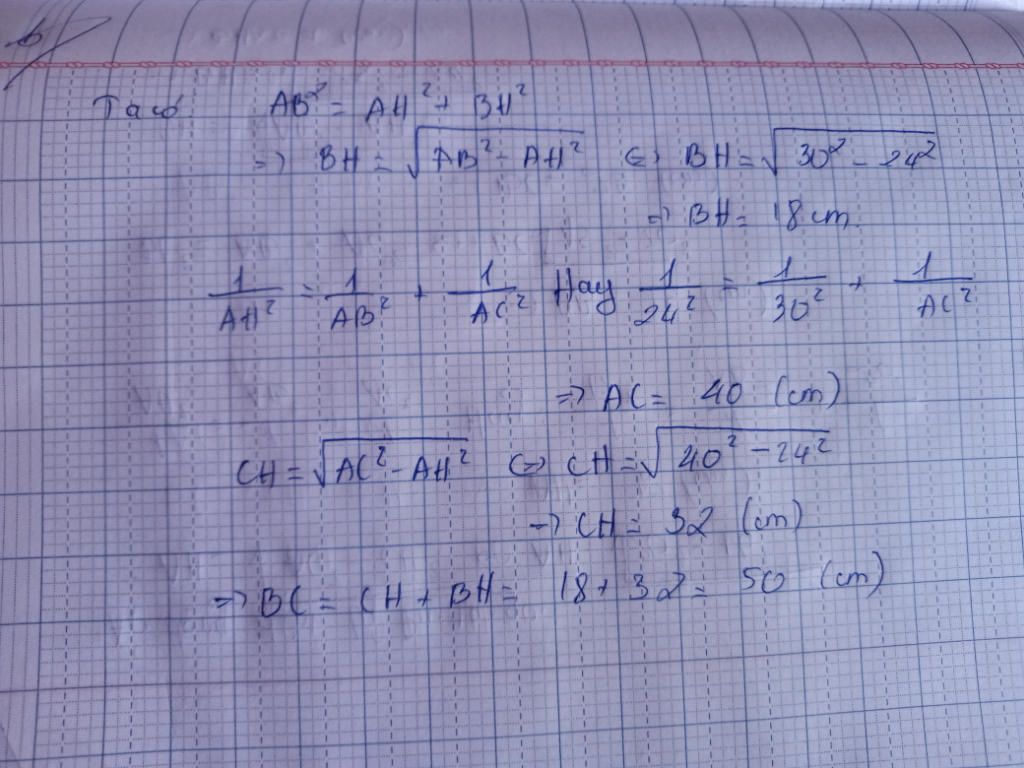 b/
Ta có AB² = AH² + BH²
=> BH = √(AB² - AH²) <=> BH = √(30² - 24²)
=> BH = 18 cm
1/AH² = 1/AB² + 1/AC² Hay 1/24² = 1/30² + 1/AC²
=> AC = 40 (cm)
CH = √(AC² - AH²) <=> CH = √(40² - 24²)
=> CH = 32 (cm)
=> BC = CH + BH = 18 + 32 = 50 (cm)